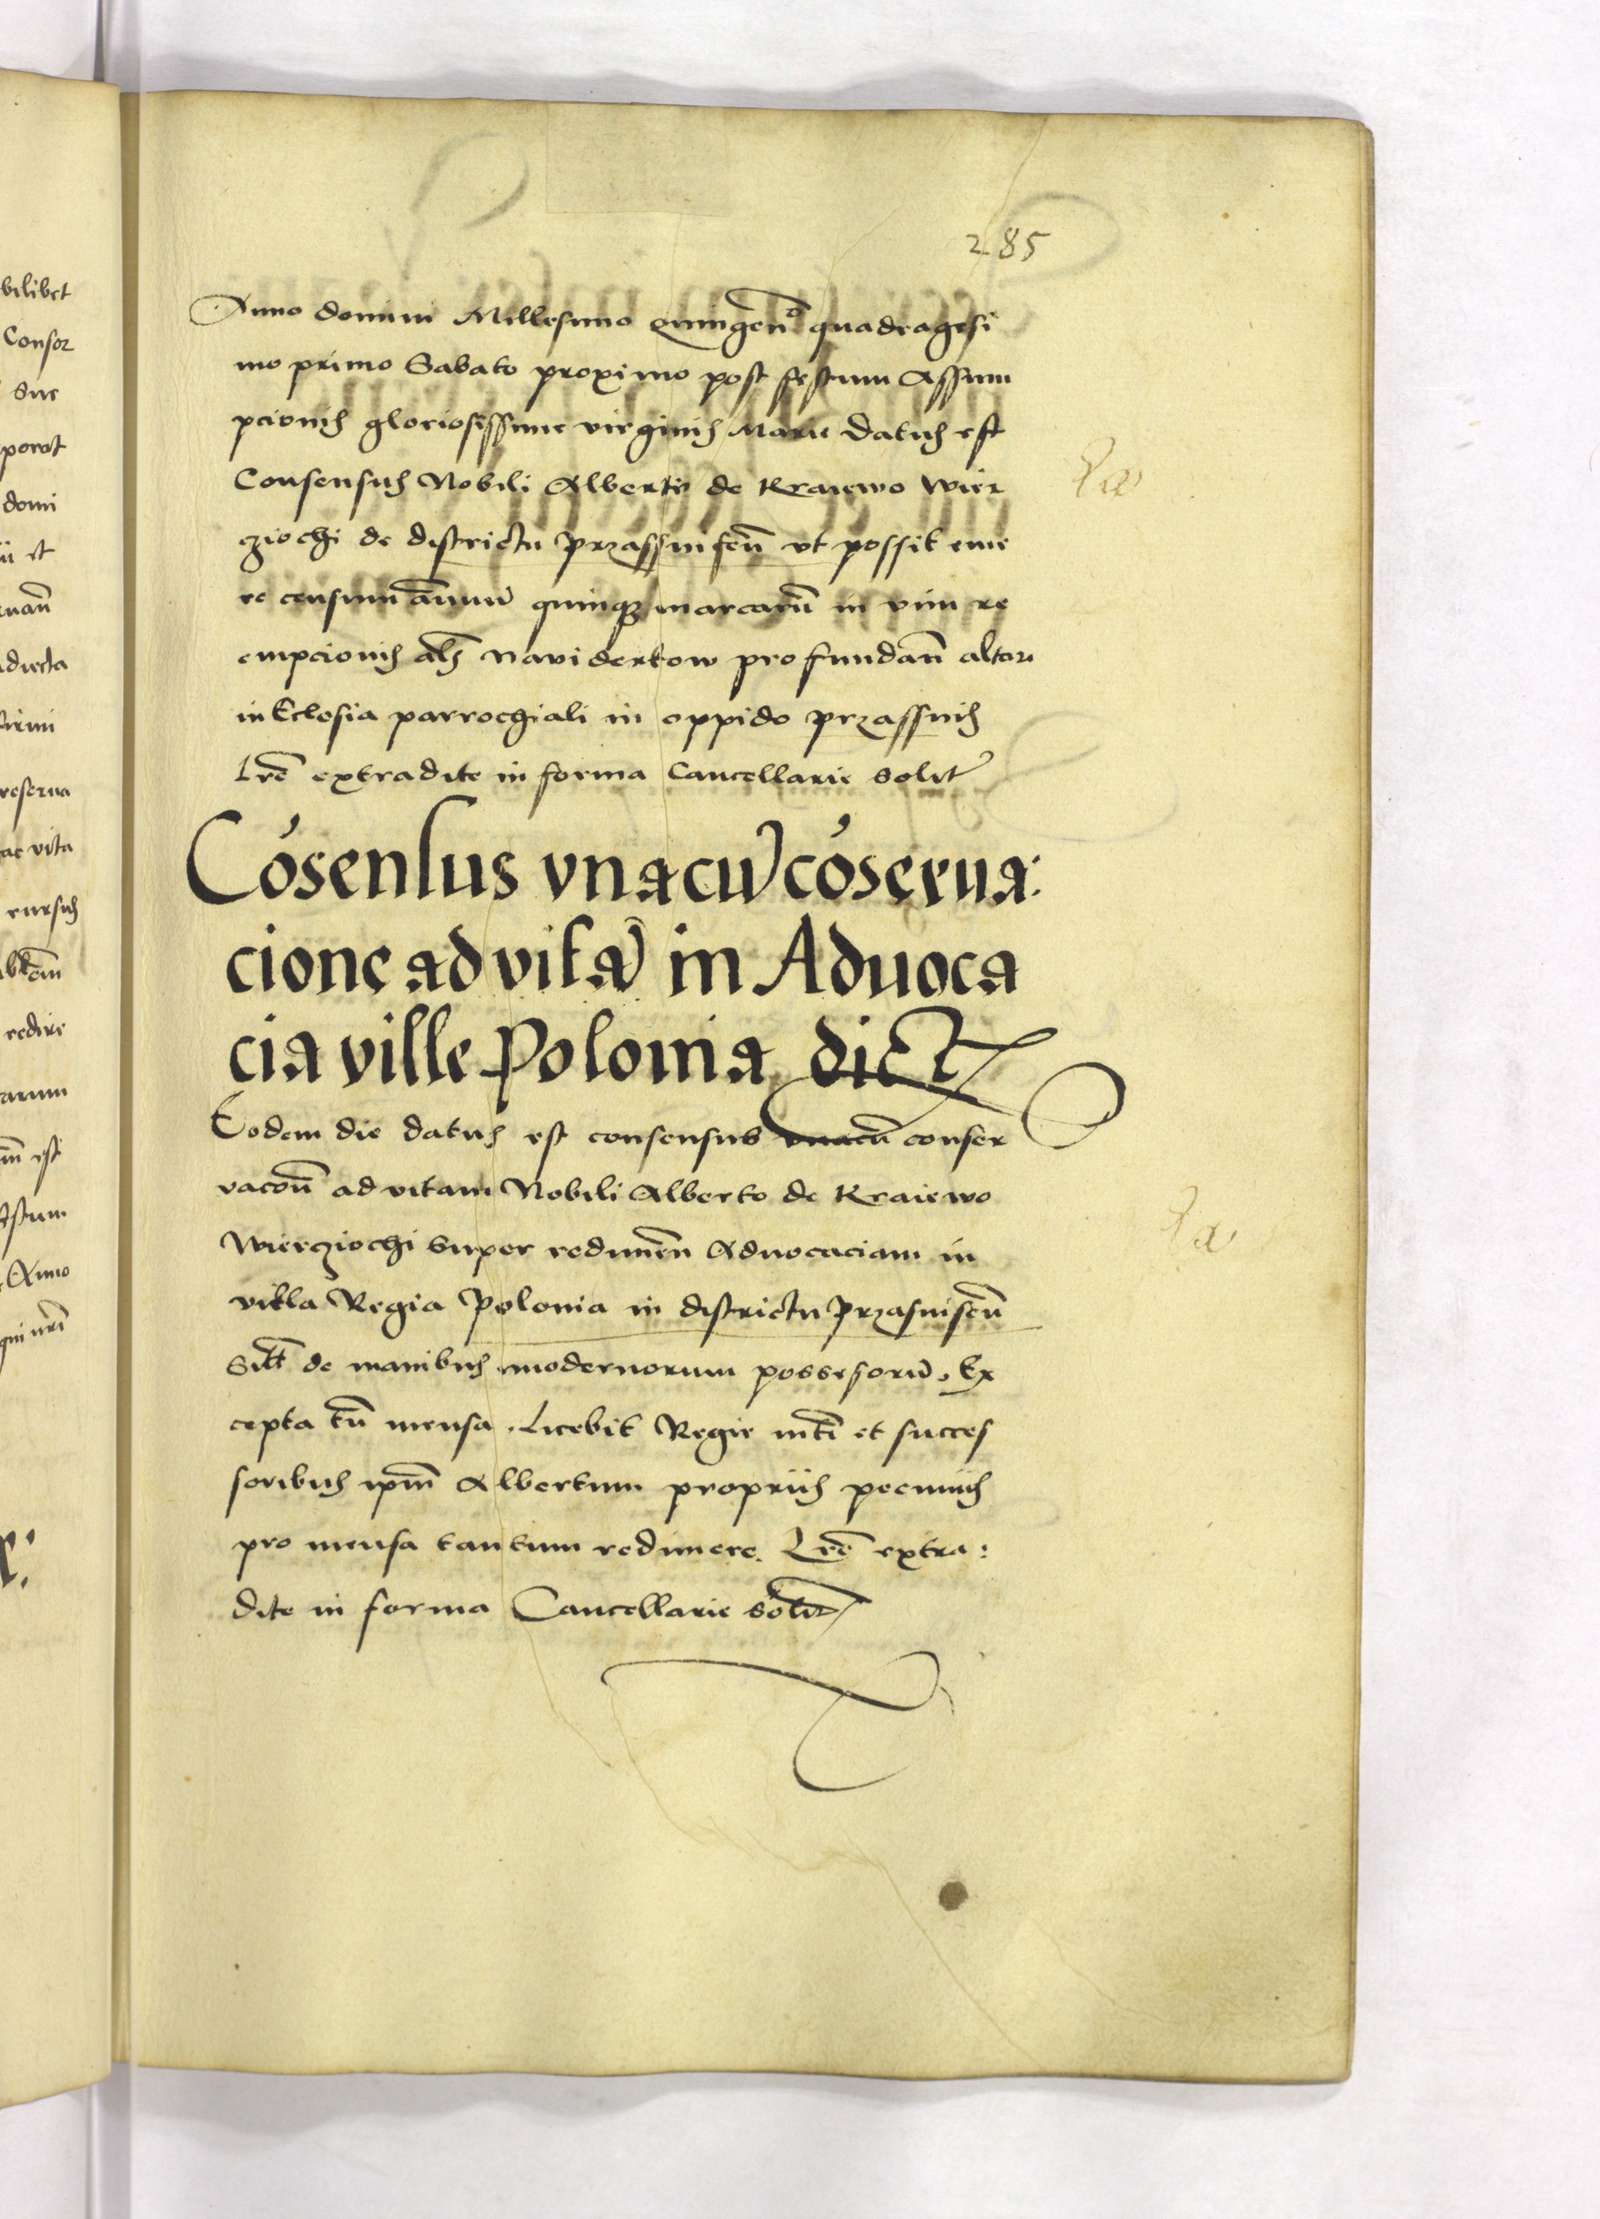 285
Anno domini Millesimo quingen̄o quadragesi
mo primo Sabato proximo post festum Assum
pcionis gloriosissime virginis Marie datus est
Consensus Nobili Alberto de Kraiewo Wier
zochi de districtu Przassnisen̄ vt possit eme
re censum annuū quinqꝫ marcarū in vim re
empcionis als naviderkow pro fundan̄ altari
in Eclesia parrochiali in oppido Przassnis
Lrē extradite in forma Cancellarie solit
Cōsensus vnacū cōserua:
cione ad vitā in Aduoca
cia ville Polonia dict
Eodem die datus est consensus vnacū conser
vacōn̄ ad vitam Nobili Alberto de Kraiewo
Wierzochi super redimen̄ Aduocaciam in
villa Regia Polonia in districtu Przasnisen̄
sitt̄ de manibus modernorum possesorū. Ex
cepta tn̄ mensa. Licebit Regie mtī et succes
soribus ipm̄ Albertum propriis pecuniis
pro mensa tantum redimere. Lrē extra:
dite in forma Cancellarie solit
bilibet
Consor
sue
domi
et
adiecta
reserua
ac vita
cursus
redire
arum
est
Anno